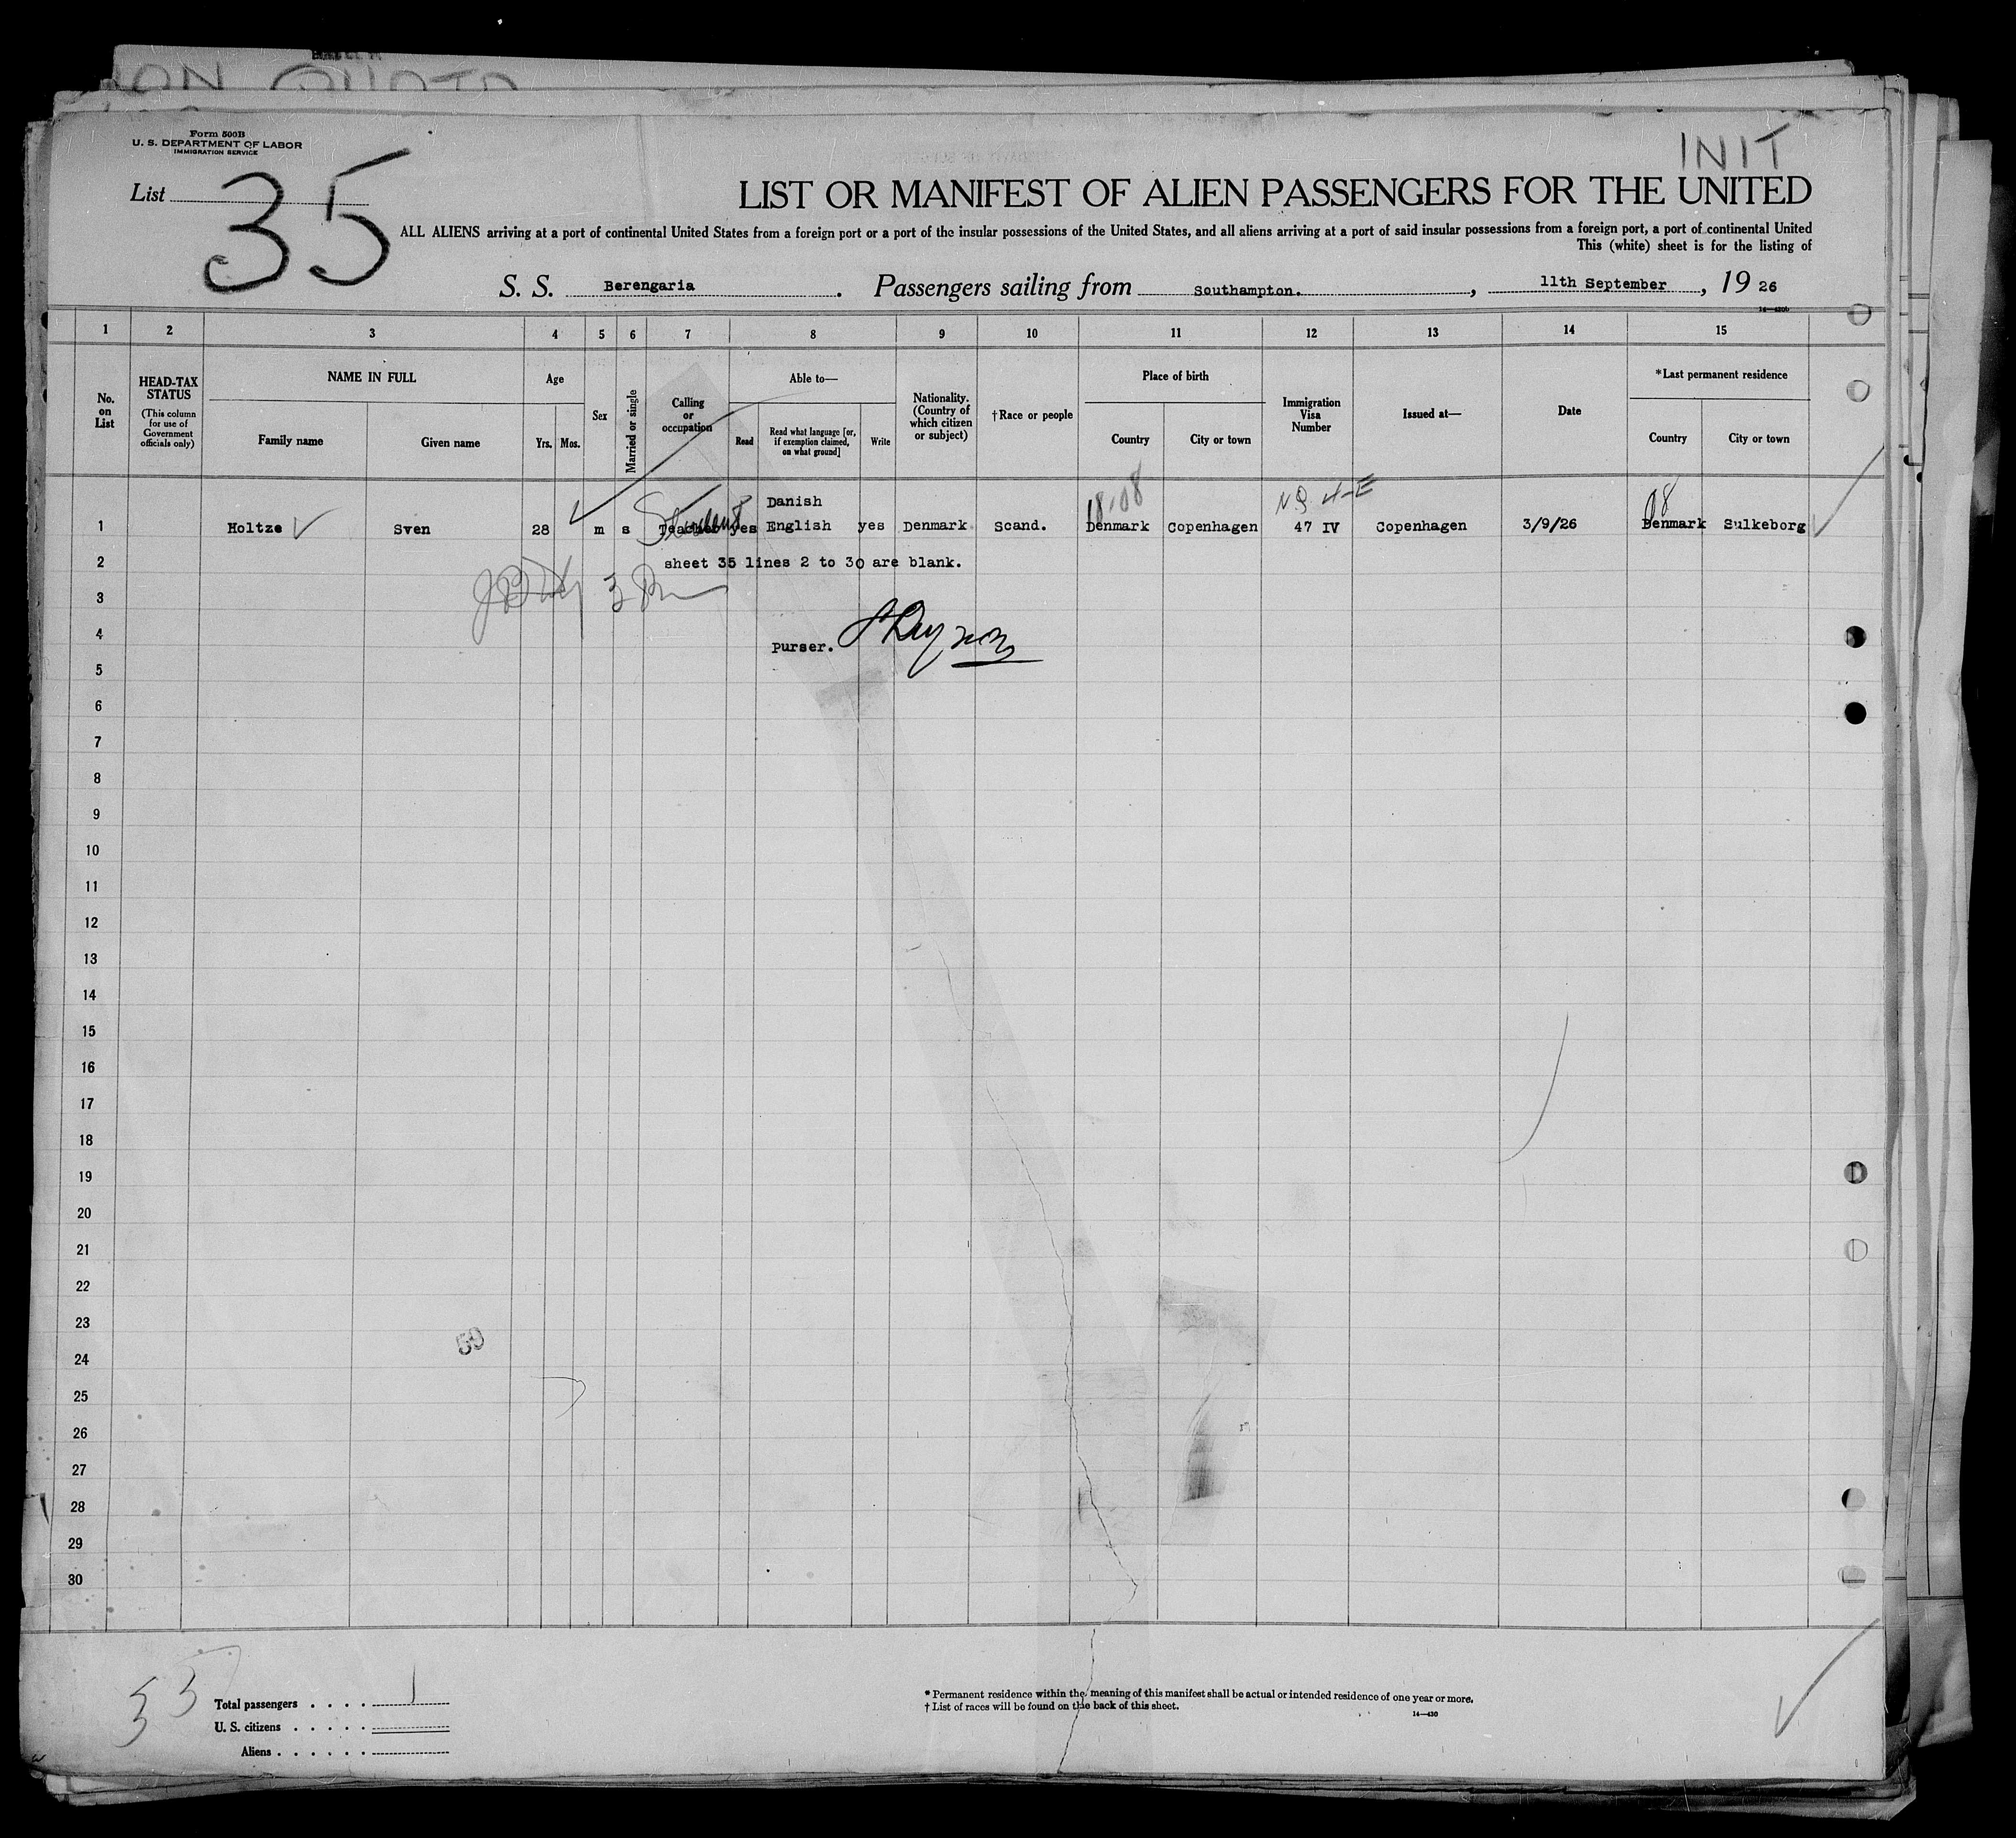 Form 500B
U. S. DEPARTMENT OF LABOR
IMMIGRATION SERVICE
INIT
List 35
LIST OR MANIFEST OF ALIEN PASSENGERS FOR THE UNITED
ALL ALIENS arriving at a port of continental United States from a foreign port or a port of the insular possessions of the United States, and all aliens arriving at a port of said insular possessions from a foreign port, a port of continental United
This (white) sheet is for the listing of
S. S. Berengaria. Passengers sailing from Southampton., 11th September, 1926
1 2 3 4 5 6 7 8 9 10 11 12 13 14 15
No. on List
HEAD-TAX STATUS
(This column for use of Government officials only)
NAME IN FULL
Family name
Given name
Age
Yrs.
Mos.
Sex
Married or single
Calling or occupation
Able to—
Read
Read what language [or, if exemption claimed, on what ground]
Write
Nationality. (Country of which citizen or subject)
†Race or people
Place of birth
Country
City or town
Immigration Visa Number
Issued at—
Date
*Last permanent residence
Country
City or town
18-08
N.Q. 4-E
08
Danish
1 Holtze Sven 28 m s Teacher Student yes English yes Denmark Scand. Denmark Copenhagen 47 IV Copenhagen 3/9/26 Denmark Sulkeborg
2 sheet 35 lines 2 to 30 are blank.
3
4 Purser.
5
6
7
8
9
10
11
12
13
14
15
16
17
18
19
20
21
22
23
59
24
25
26
27
28
29
30
35
Total passengers . . . . 1
U. S. citizens . . . . .
Aliens . . . . . .
* Permanent residence within the meaning of this manifest shall be actual or intended residence of one year or more.
† List of races will be found on the back of this sheet.
14—430